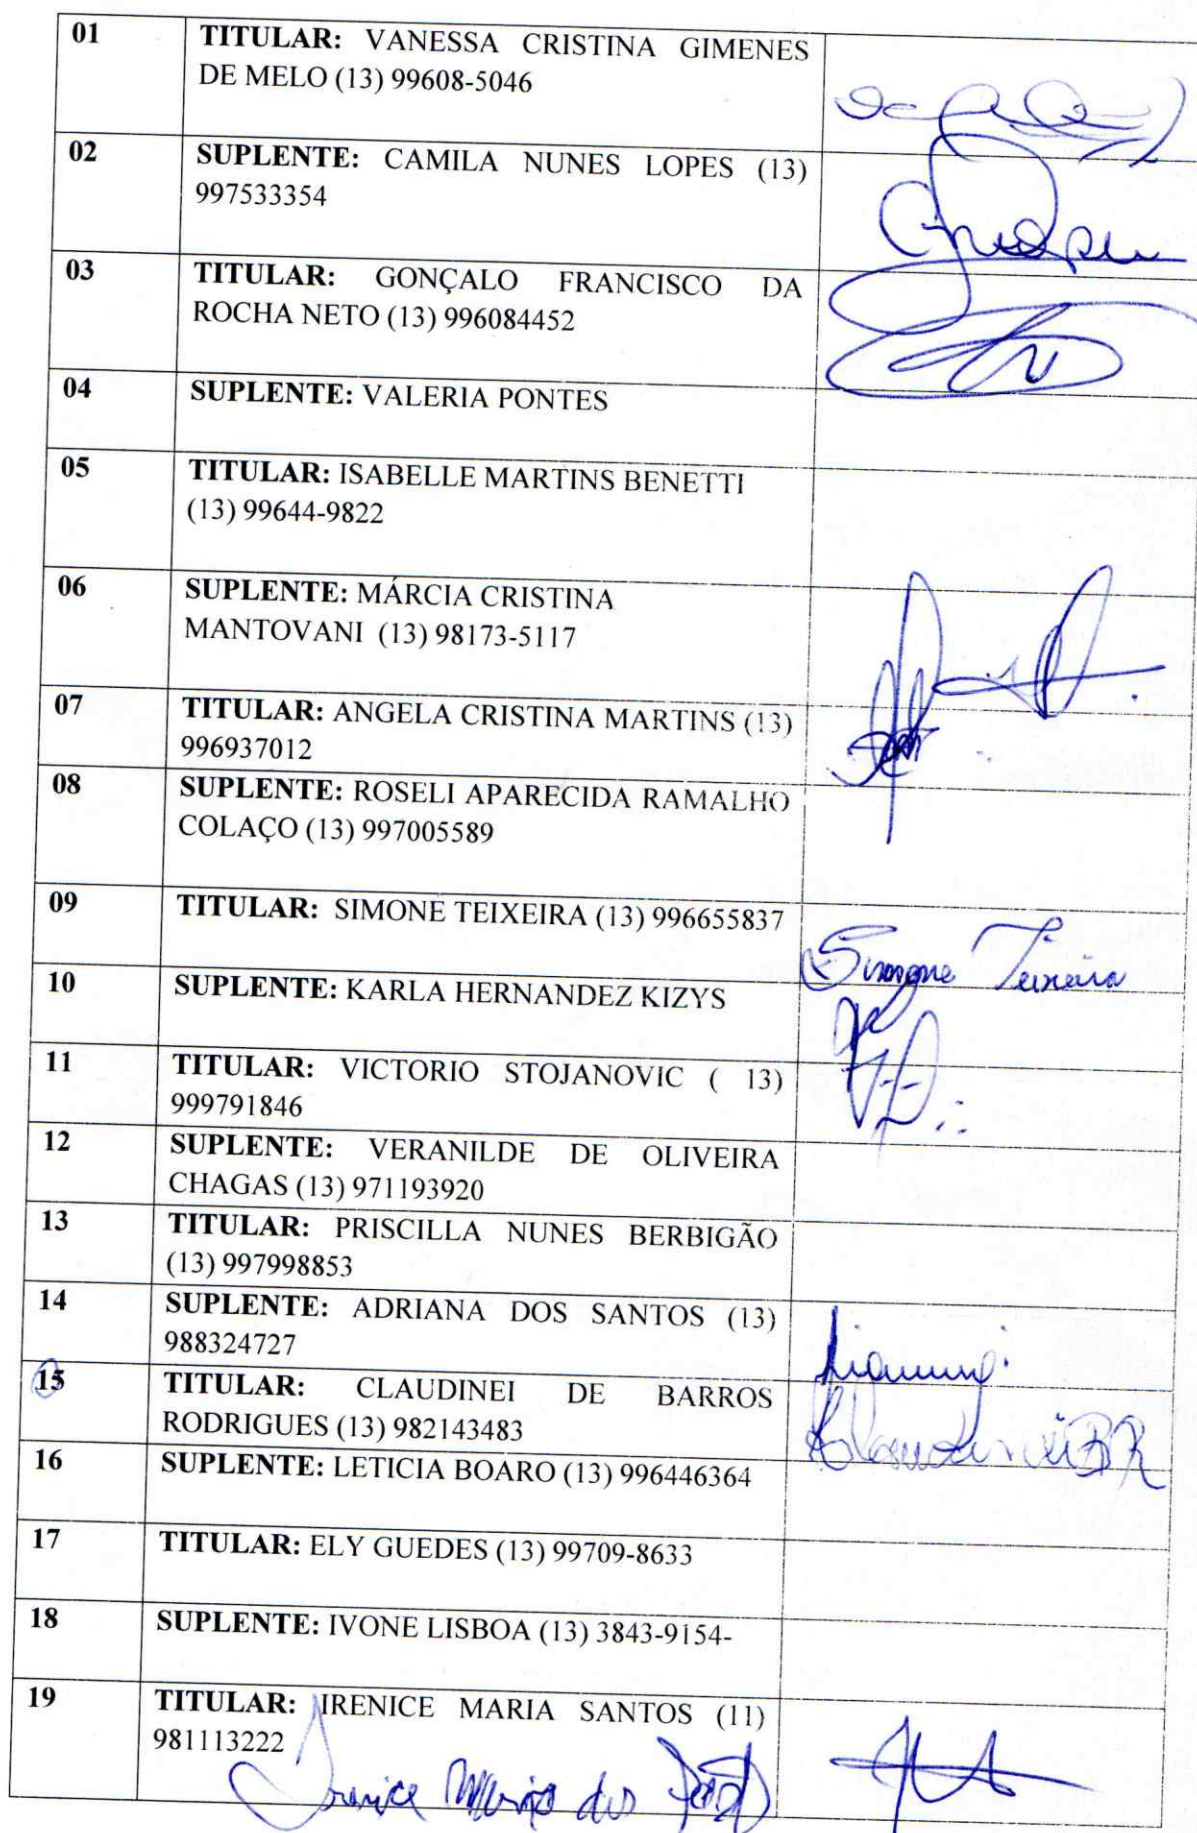 01 TITULAR: VANESSA CRISTINA GIMENES
DE MELO (13) 99608-5046
02 SUPLENTE: CAMILA NUNES LOPES (13)
997533354
03 TITULAR: GONÇALO FRANCISCO DA
ROCHA NETO (13) 996084452
04 SUPLENTE: VALERIA PONTES
05 TITULAR: ISABELLE MARTINS BENETTI
(13) 99644-9822
06 SUPLENTE: MÁRCIA CRISTINA
MANTOVANI (13) 98173-5117
07 TITULAR: ANGELA CRISTINA MARTINS (13)
996937012
08 SUPLENTE: ROSELI APARECIDA RAMALHO
COLAÇO (13) 997005589
09 TITULAR: SIMONE TEIXEIRA (13) 996655837
Simone Teixeira
10 SUPLENTE: KARLA HERNANDEZ KIZYS
11 TITULAR: VICTORIO STOJANOVIC ( 13)
999791846
12 SUPLENTE: VERANILDE DE OLIVEIRA
CHAGAS (13) 971193920
13 TITULAR: PRISCILLA NUNES BERBIGÃO
(13) 997998853
14 SUPLENTE: ADRIANA DOS SANTOS (13)
988324727
15 TITULAR: CLAUDINEI DE BARROS
RODRIGUES (13) 982143483
Claudinei BR
16 SUPLENTE: LETICIA BOARO (13) 996446364
17 TITULAR: ELY GUEDES (13) 99709-8633
18 SUPLENTE: IVONE LISBOA (13) 3843-9154-
19 TITULAR: IRENICE MARIA SANTOS (11)
981113222
Irenice Maria dos Santos